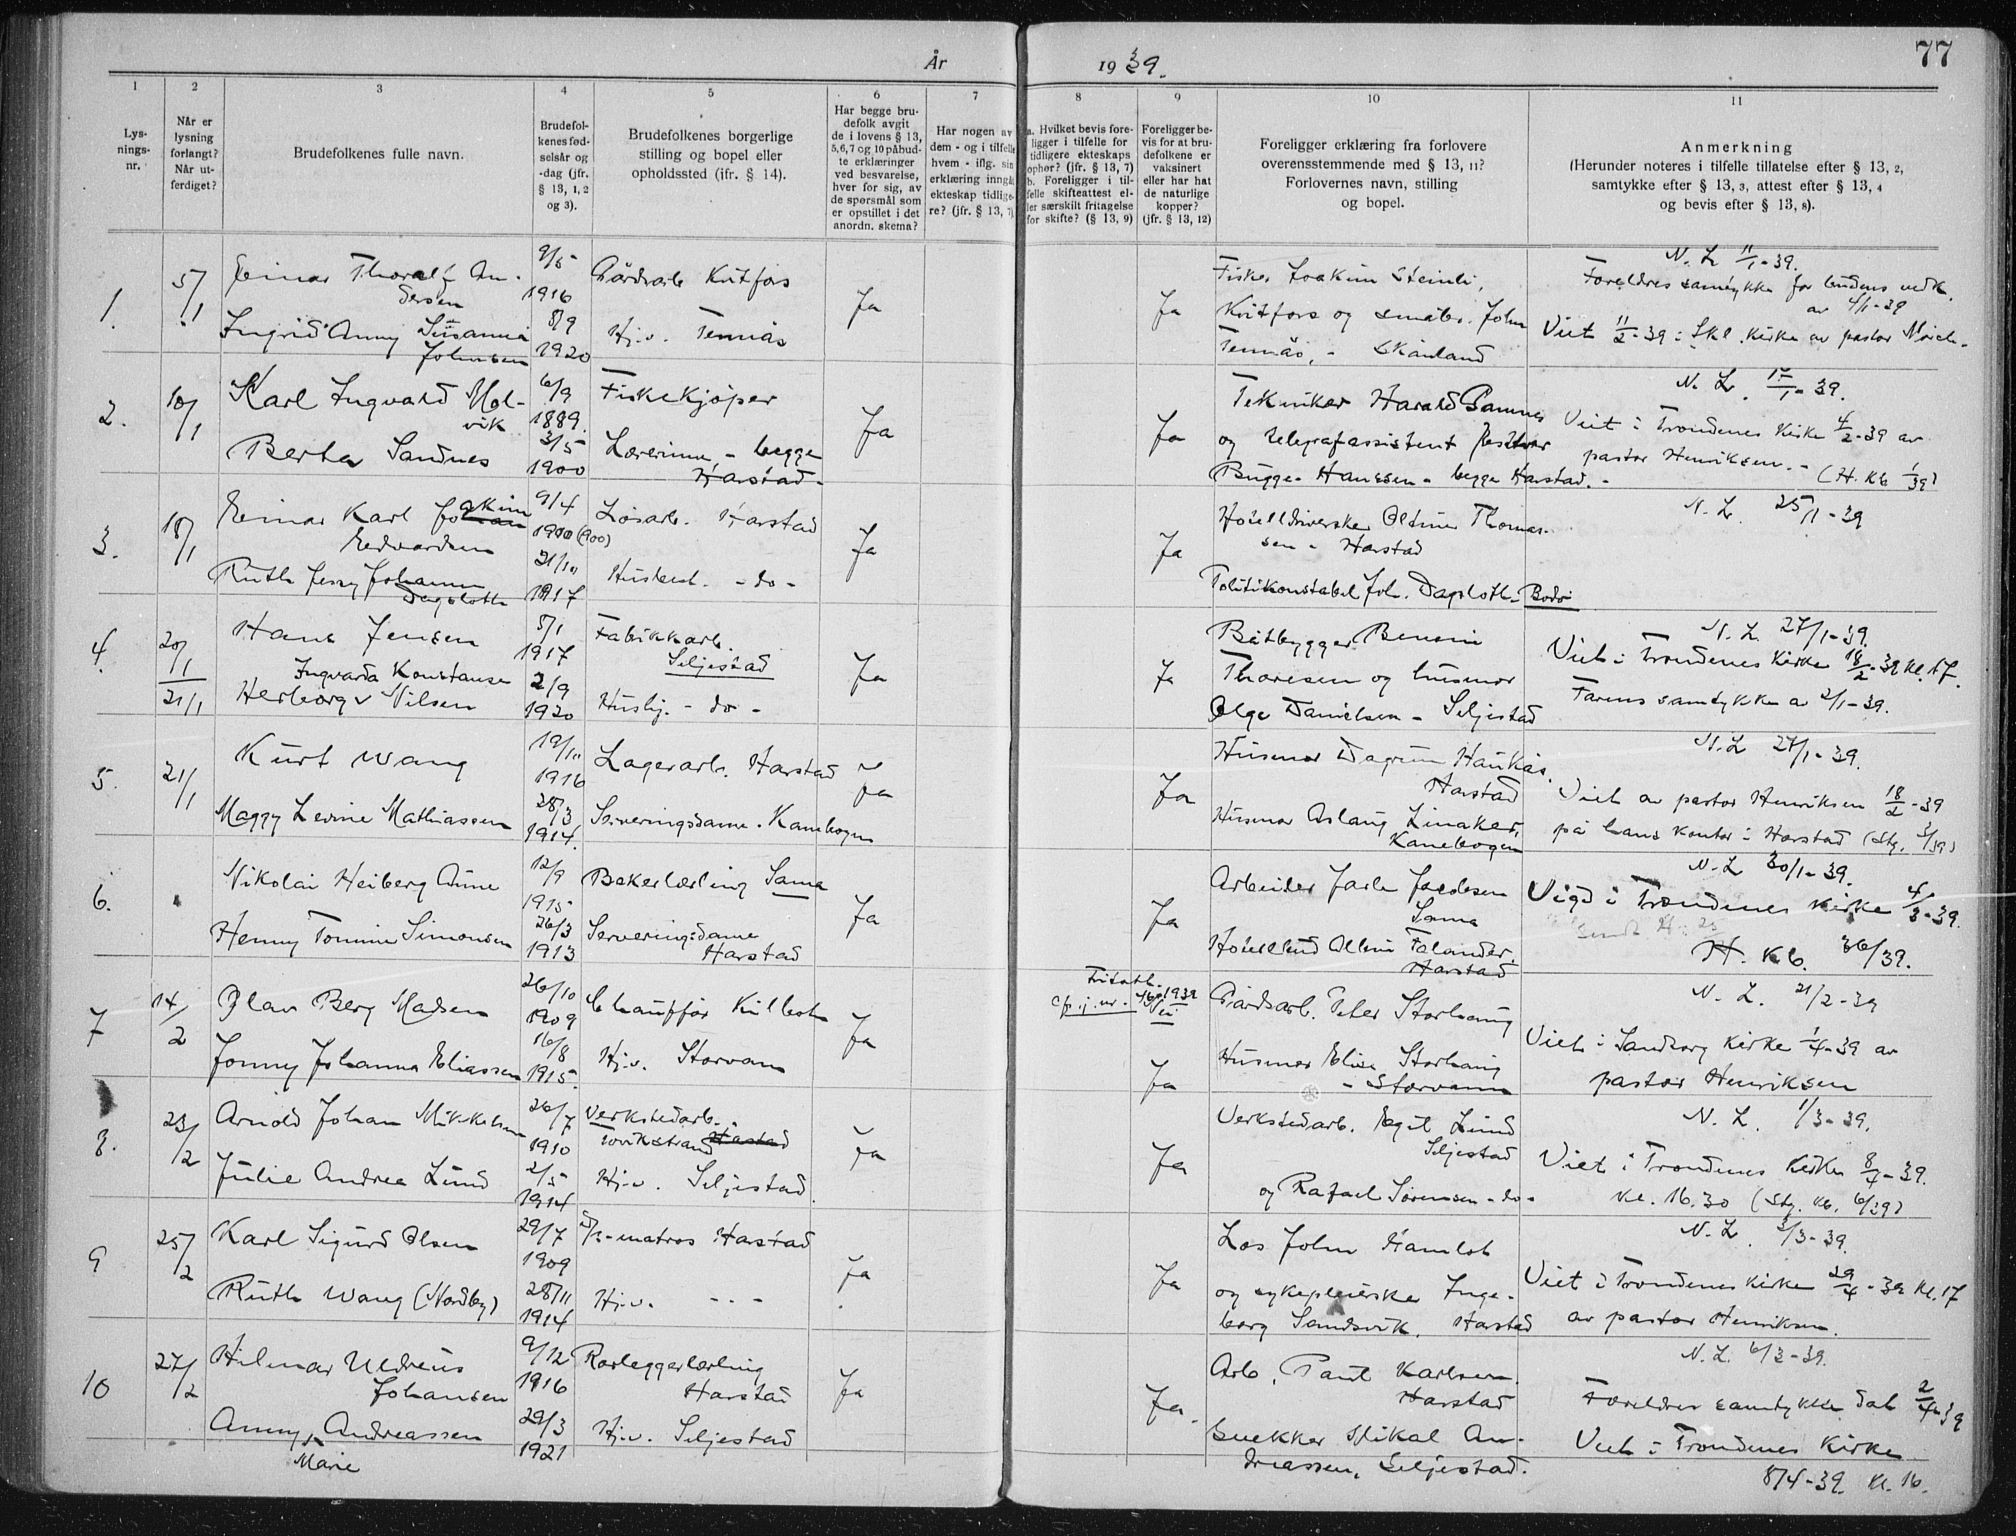 77
År 1939.
1 2 3 4 5 6 7 8 9 10 11
Lysningsnr.
Når er lysning forlangt? Når utferdiget?
Brudefolkenes fulle navn.
Brudefolkenes fødselsår og -dag (jfr. § 13, 1, 2 og 3).
Brudefolkenes borgerlige stilling og bopel eller opholdssted (ifr. § 14).
Har begge brudefolk avgit de i lovens § 13, 5,6,7 og 10 påbudte erklæringer ved besvarelse, hver for sig, av de spørsmål som er opstillet i det anordn. skema?
Har nogen av dem - og i tilfelle hvem - iflg. sin erklæring inngått ekteskap tidligere? (jfr. § 13, 7)
a. Hvilket bevis foreligger i tilfelle for tidligere ekteskaps ophør? (jfr. § 13, 7) b. Foreligger i tilfelle skifteattest eller særskilt fritagelse for skifte? (§ 13, 9)
Foreligger bevis for at brudefolkene er vaksinert eller har hat de naturlige kopper? (jfr. § 13, 12)
Foreligger erklæring fra forlovere overensstemmende med § 13, 11? Forlovernes navn, stilling og bopel.
Anmerkning (Herunder noteres i tilfelle tillatelse efter § 13, 2, samtykke efter § 13, 3, attest efter § 13, 4 og bevis efter § 13, 8).
1. 5/1
Einar Thoralf Andersen 9/5 1916 Gårdsarb. Kvitfors
Ingrid Anny Susanna Johnsen 8/9 1920 Hj.v. Tennås
Ja Ja
Fisker Joakim Steinli,
Kvitfors og småbr. John
Tennås, - Skånland
N. L. 11/1-39.
Foreldres samtykke for brudens vedk.
av 4/1-39
Viet 11/2-39 i Skl. kirke av pastor
2. 10/1
Karl Ingvald Molvik 6/9 1889. Fiskekjøper
Berta Sandnes 3/5 1900 Lærerinne - begge Harstad -
Ja Ja
Tekniker Harald
og telegrafassistent
Bugge-Hanssen - begge Harstad. -
N. L. 17/1-39.
Viet i Trondenes Kirke 4/2-39 av
pastor Henriksen. - (H. Kb 1/39)
3. 18/1
Einar Karl Joakim Edvardsen 9/4 1900 (900) Løsarb. Harstad
Ruth Jenny Johanne Dagslott 21/10 1917 Husbest. - do -
Ja Ja
Hotelldriverske Oltine Thomassen - Harstad
Politikonstabel Joh. Dagslott - Bodø
N. L. 25/1-39
4. 20/1 21/1
Hans Jensen 5/1 1917 Fabrikkarb. Seljestad
Ingvarda Konstanse Herborg v Nilsen 2/9 1920 Hushj. - do -
Ja Ja
Båtbygger Benoni
Thoresen og husmor
Olga Danielsen - Seljestad
N. L. 27/1-39.
Viet i Trondenes Kirke 18/2-39 kl. 17.
Farens samtykke av 2/1-39.
5. 21/1
Kurt Wang 19/10 1916 Lagerarb. Harstad
Maggy Levine Mathiassen 28/3 1914. Serveringsdame. Kanebogen
Ja Ja
Husmor Dagrun Haukås.
Harstad
Husmor Aslaug Linaker,
Kanebogen
N. L. 27/1-39.
Viet av pastor Henriksen 18/2-39
på hans kontor i Harstad (Stg. 3/39)
6.
Nikolai Heiberg Aune 12/9 1915 Bakerlærling Sama
Henny Tomine Simonsen 26/3 1913 Serveringsdame Harstad
Ja Ja
Arbeider Jarle Jacobsen
Sama
Falander.
Harstad
N. L. 30/1-39.
Vigd i Trondenes kirke 4/3-39.
H. Kb. 36/39.
7 14/2
Olav Berg Madsen 26/10 1909 Chauffør Kilbotn
Jonny Johanna Eliassen 16/8 1915. Hj.v. Storvann
Ja Ja
Gårdsarb. Peter Storhaug
Husmor Elise Storhaug
- Storvann
N. L. 21/2-39
Viet i Sandtorg Kirke 1/4-39 av
pastor Henriksen
8. 23/2
Arnold Johan Mikkelsen 26/7 1910 Verkstedarb. Tovikstrand Harstad
Julie Andrea Lund 2/5 1914 Hj.v. Seljestad.
Ja Ja
Verkstedarb. Egil Lund
Seljestad
og Rafael Sørensen - do -
N. L. 1/3-39.
Viet i Trondenes kirke 8/4-39.
kl. 16.30 (Stg. Kb. 6/39)
9 25/2
Karl Sigurd Olsen 29/7 1909 matros Harstad
Ruth Wang (Nordby) 28/11 1914 Hj.v. - - -
Ja Ja
Los John Hamlot
og sykepleierske Ingeborg Sandsvik. Harstad
N. L. 3/3-39.
Viet i Trondenes kirke 29/4-39 kl. 17
av pastor Henriksen.
10 27/2
Hilmar Uldreus Johansen 9/12 1916 Rørleggerlærling Harstad
Anny Marie Andreassen 29/3 1921 Hj.v. Seljestad
Ja Ja.
Arb. Paul Karlsen.
Harstad
Snekker Mikal Andreassen, Seljestad.
N. L. 6/3-39.
Foreldres samtykke dat 2/4-39
Viet i Trondenes kirke
8/4-39. kl. 16.